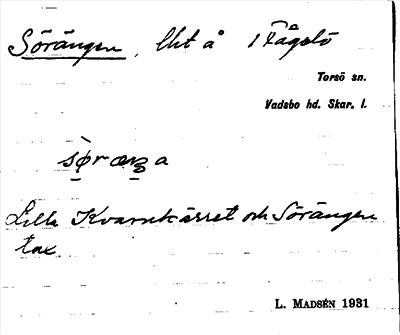 Sörängen, Lht å Fågelö
Torsö sn.
Vadsbo hd. Skar. l.
Lilla Kvarnkärret och Sörängen
tax.
L. MADSÉN 1931